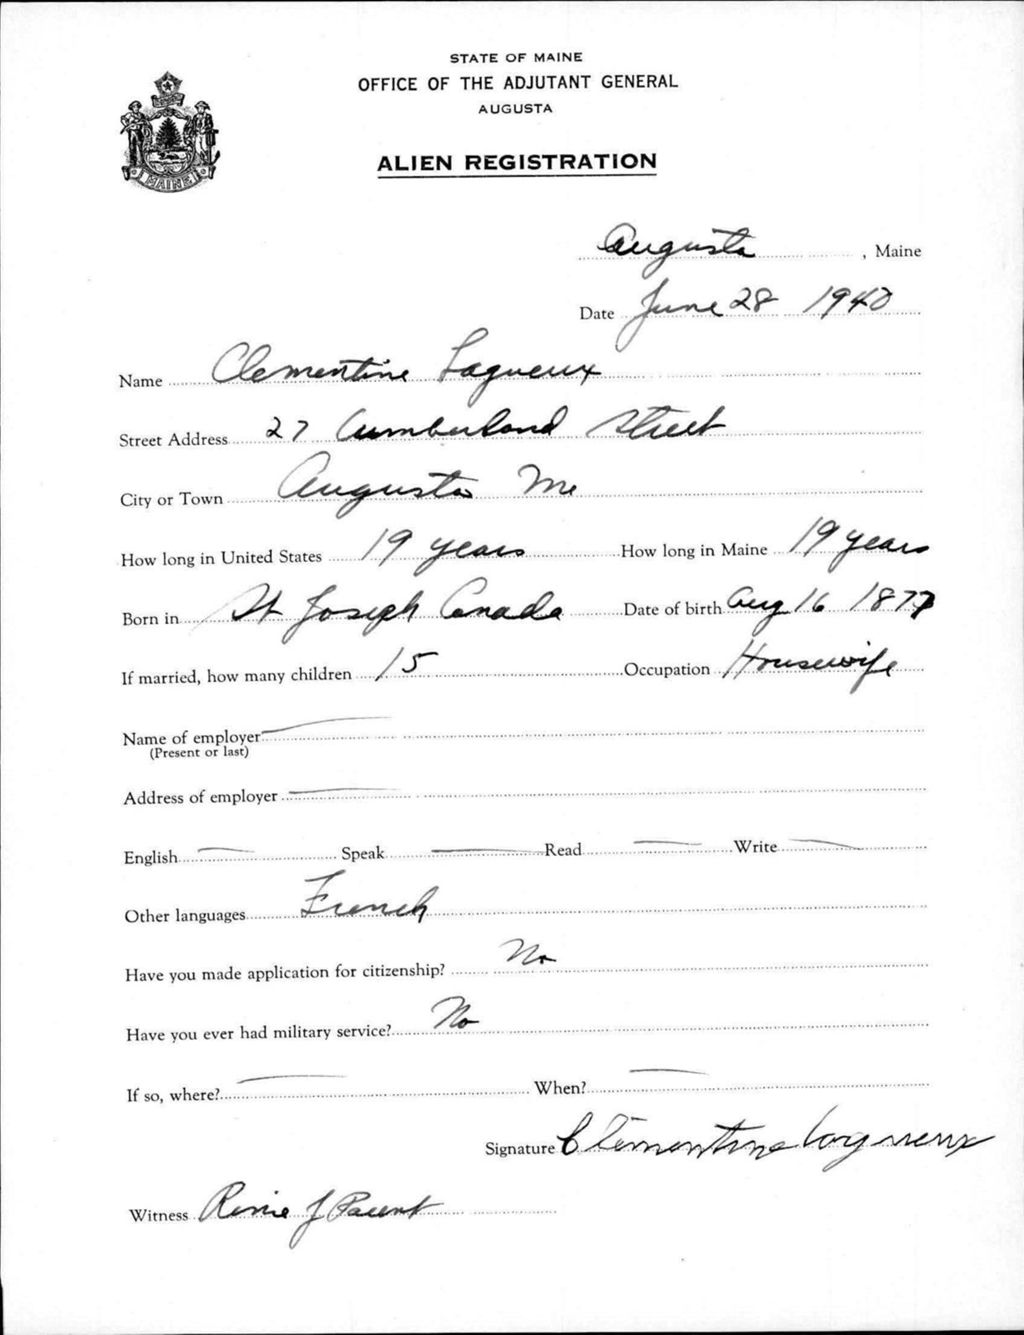 STATE OF MAINE
OFFICE OF THE ADJUTANT GENERAL
AUGUSTA
ALIEN REGISTRATION
MAINE
Augusta, Maine
Date June 28 1940
Name Clementine Lagueux
Street Address 27 Cumberland Street
City or Town Augusta Me
How long in United States 19 years How long in Maine 19 years
Born in St Joseph Canada Date of birth Aug 16 1877
If married, how many children 15 Occupation Housewife
Name of employer
(Present or last)
Address of employer
English Speak Read Write
Other languages French
Have you made application for citizenship? No
Have you ever had military service? No
If so, where? When?
Signature Clementine Lagueux
Witness J Parent